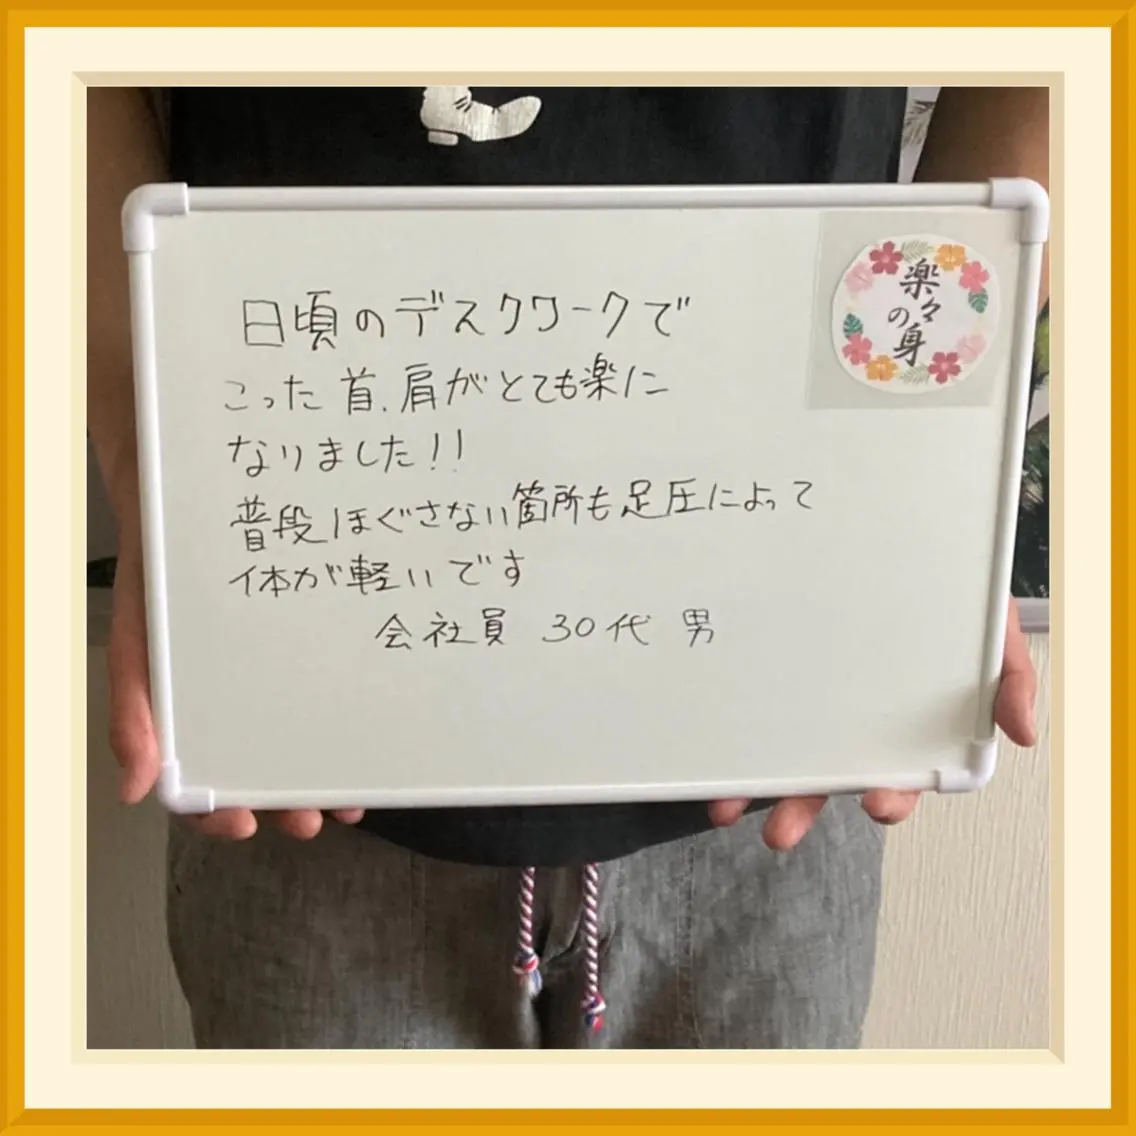 日頃のデスクワークで
こった首.肩がとても楽に
なりました!!
普段ほぐさない箇所も足圧によって
体が軽いです
会社員 30代 男
楽々
の身